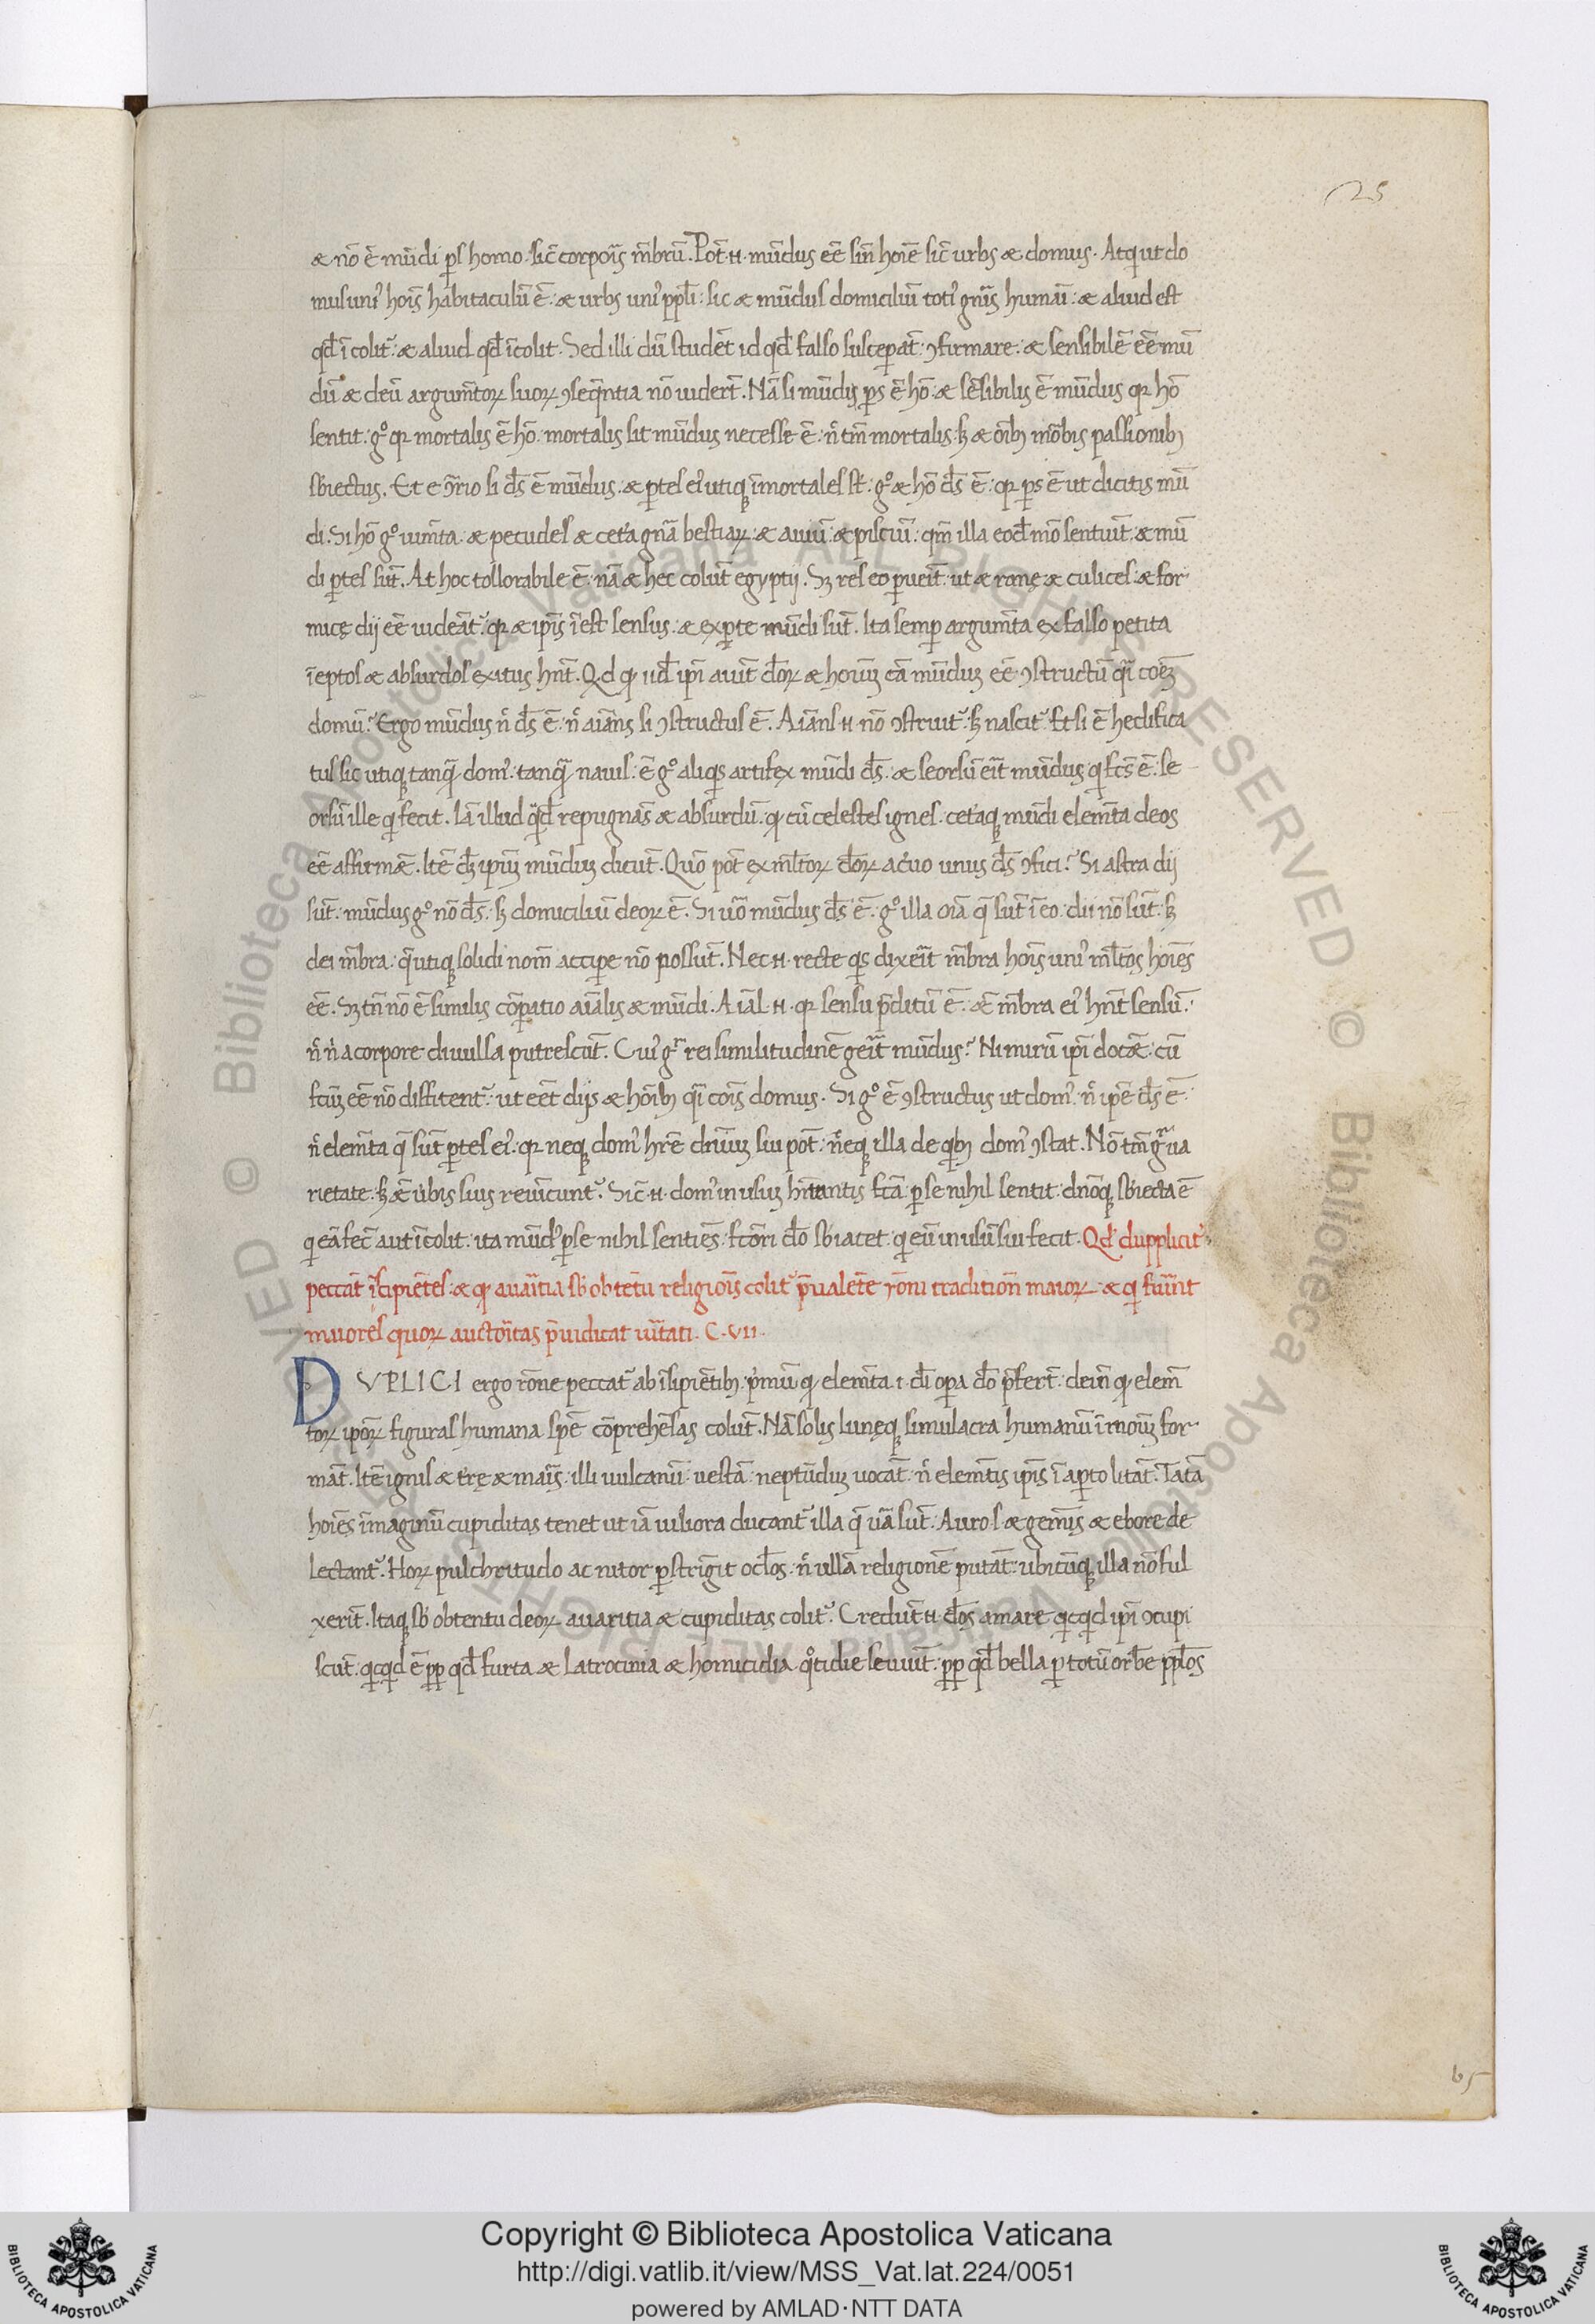 25
æ nō ē mūdi ꝑs homo sic̄ corpoꝛ̄is mēbrū. Pōt .n. mūdus eē sin̄ hoīe sic̄ urbs æ domus. Atq; ut do
mus uniꝰ hoīs habitaculū ē: æ urbs uniꝰ pp̄li: sic æ mūdus domiciliū totiꝰ gn̄is humāi: æ aliud est
qd̄ īcolit᷑: æ aliud qd̄ īcolit. Sed illi dū studēt id qd̄ falso susceꝑāt: ꝯfirmare: æ sensibilē eē mū
dū æ deū argum̄toꝝ suoꝝ ꝯseq̄ntia nō uidert̄. Nā si mūdi ꝑs ē hō: æ sēsibilis ē mūdus qꝛ hō
sentit: gº qꝛ mortalis ē hō: mortalis sit mūdus necesse ē: n̄ tm̄ mortalis: sꝫ æ oīb; mōbis passionib;
sbiectus. Et e ꝯr̄io si d̄s ē mūdus: æ ꝑtes eiꝰ utiq; īmortales st̄: gº æ hō d̄s ē: qꝛ ꝑs ē ut dicitis mū
di. Si hō gº ium̄ta: æ pecudes æ cet᷑a gn̄a bestiaꝝ: æ auiū: æ pisciū: qm̄ illa eod̄ mō sentiūt: æ mū
di ꝑtes sūt. At hoc tollorabile ē: nā æ hec colūt egyptij. Sꝫ res eo ꝑueīt: ut æ ranę æ culices: æ for
micę dij eē uideāt᷑: qꝛ æ ip̄is īest sensus: æ ex ꝑte mūdi sūt. Ita semꝑ argum̄ta ex falso petita
īeptos æ absurdos exitus hn̄t. Qd ꝙ iid̄ ip̄i aiūt d̄oꝝ æ hoīuꝫ cā mūduꝫ eē ꝯstructū q̄i cōeꝫ
domū? Ergo mūdus n̄ d̄s ē: n̄ aīans si ꝯstructus ē. Aīans .n. nō ꝯstruit᷑: sꝫ nascit᷑: Et si ē hedifica
tus sic utiq; tanq̄ domꝰ: tanq̄ nauis: ē gº aliqs artifex mūdi d̄s: æ seorsū eīt mūdus q̄ fc̄s ē: se
orsū ille q̄ fecit. Iā illud q̄d repugnās æ absurdū: ꝙ cū celestes ignes: cet᷑aq; mūdi elem̄ta deos
eē affirmē. Itē d̄ꝫ ip̄uꝫ mūduꝫ dicūt. Quō pōt ex ml̄toꝝ d̄oꝝ ac̄uo unus d̄s ꝯfici? Si astra dij
sūt: mūdus gº nō d̄s: sꝫ domiciliū deoꝝ ē. Si uō mūdus d̄s ē: gº illa oīa q̄ sūt ī eo: dii nō sūt: sꝫ
dei m̄bra: q̄ utiq; solidi nom̄ accipe nō possūt. Nec .n. recte qs dixeīt m̄bra hoīs uniꝰ ml̄tos hoīes
eē. Sꝫ tn̄ nō ē similis cōꝑatio aīalis æ mūdi. Aīal .n. qꝛ sensu p̄ditū ē: æ m̄bra eiꝰ hn̄t sensū:
n̄ n̄ a corpore diuulsa putrescūt. Cuiꝰ g̊ rei similitudinē geīt mūdus? Nimirū ip̄i docēt: cū
fcūꝫ eē nō diffitent᷑: ut eēt dijs æ hōib; q̄i cōis domus. Si gº ē ꝯstructus ut domꝰ: n̄ ip̄e d̄s ē:
n̄ elem̄ta q̄ sūt ꝑtes eiꝰ: qꝛ neq; domꝰ hr̄e dn̄iuꝫ sui pōt: n̄eq; illa de qb; domꝰ ꝯstat. Nō tm̄ g̊ ua
rietate: sꝫ æ ūbis suis reuīcunt᷑. Sic̄ .n. domꝰ in usuꝫ hītantis fc̄a: ꝑ se nihil sentit: dn̄oq; sbiecta ē
q̄ eā fec̄ aut īcolit: ita mūdꝰ ꝑ se nihil sentiēs: fcōri d̄o sbiacet: q̄ eū in usū sui fecit. Qd̄ dupplicit᷑
peccāt īsipiētes: æ ꝙ auaītia sb obtētu religiōis colit᷑ p̄ualēte rōni traditiōn maioꝝ: æ q̄ fuīnt
maiores quoꝝ auctoītas p̄iudicat uītati. C. VII.
DVPLICI ergo rōne peccat᷑ ab īsipiētib; p̄mū ꝙ elem̄ta .i. d̄i oꝑa d̄o p̄fert̄: dein̄ ꝙ elem̄
toꝝ ip̄oꝝ figuras humana sp̄e cōprehēsas colūt. Nā solis lunęq; simulacra humanū ī modū for
māt. Itē ignis æ t᷑rę æ maīs: illi uulcanū: uestā: neptūduꝫ uocāt: n̄ elem̄tis ip̄is ī aꝑto litāt. Tāta
hoīes īmaginū cupiditas tenet ut iā uiliora ducant᷑ illa q̄ uā sūt: Auro .s. æ gem̄is æ ebore de
lectant᷑. Hoꝝ pulchritudo ac nitor ꝑstrīgit ocl̄os: n̄ ullā religionē putāt: ubicūq; illa nō ful
xerīt. Itaq; sb obtentu deoꝝ auaritia æ cupiditas colit᷑. Credūt .n. d̄os amare qcqd ip̄i ꝯcupi
scūt: qcqd ē pp qd̄ furta æ latrocinia æ homicidia q̊tidie seuiūt: pp qd̄ bella ꝑ totū orb̄e pp̄l̄os
65
Copyright © Biblioteca Apostolica Vaticana
http://digi.vatlib.it/view/MSS_Vat.lat.224/0051
powered by AMLAD·NTT DATA